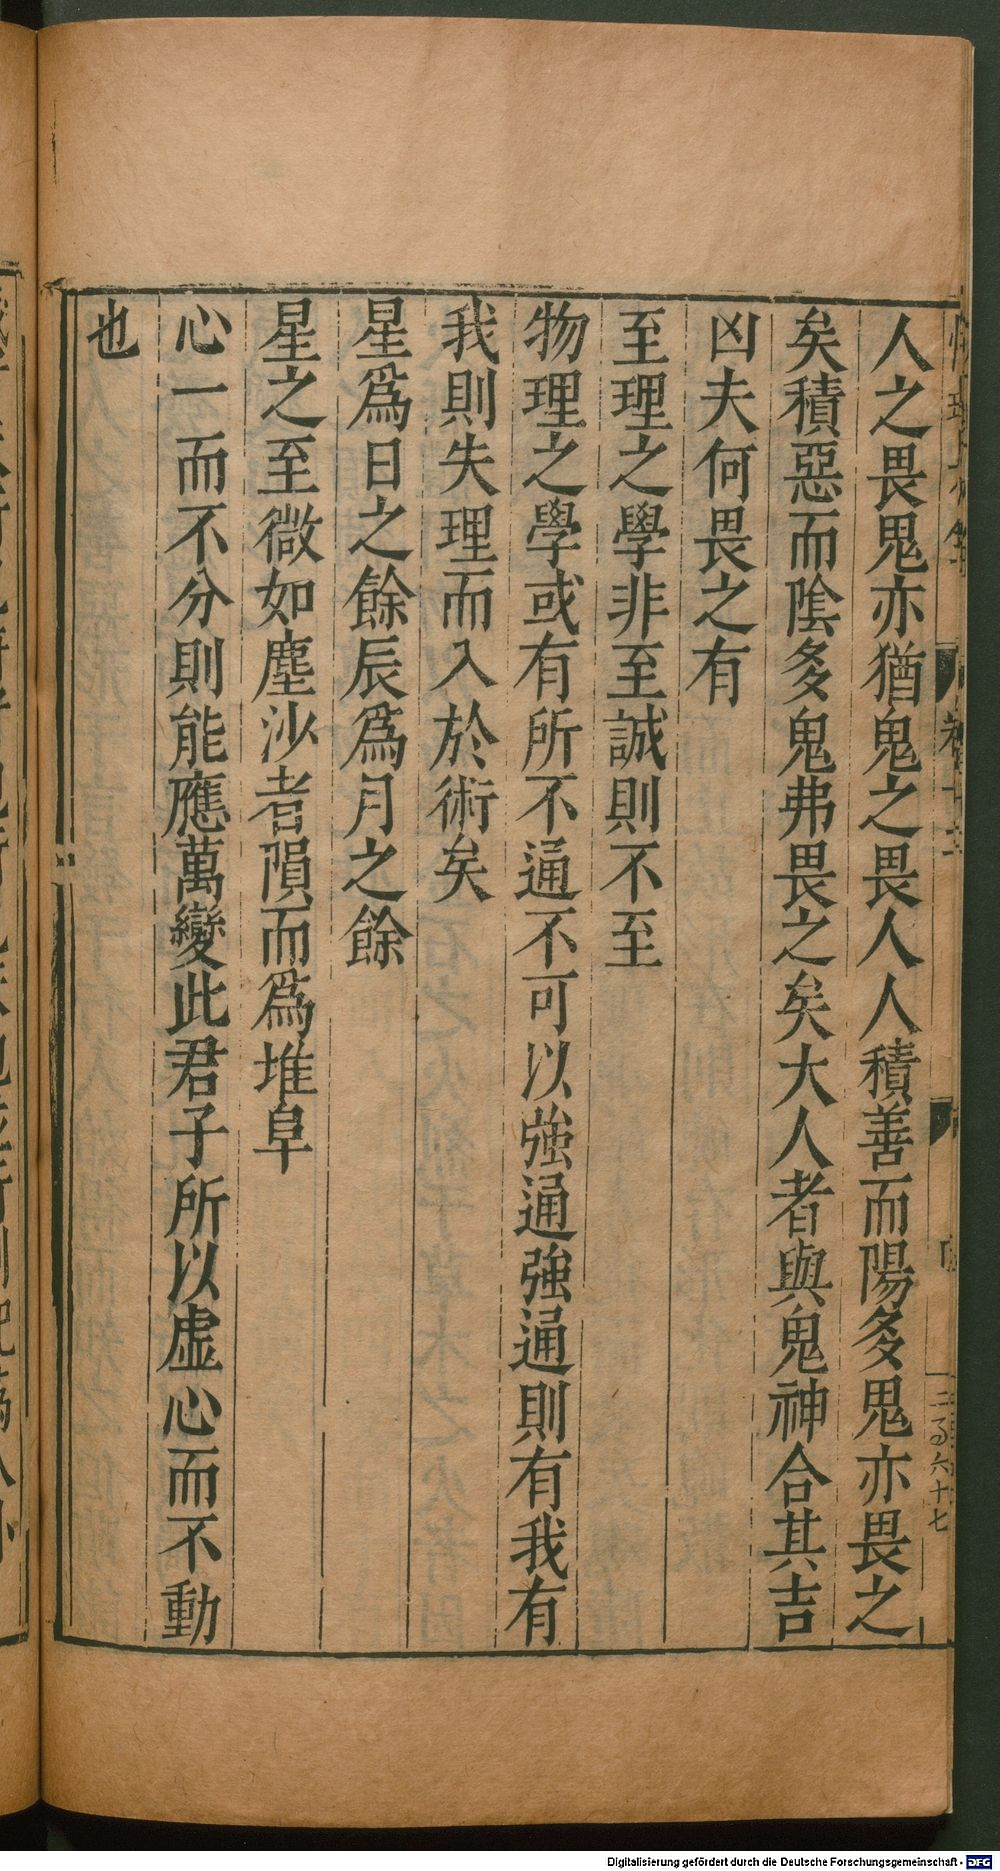 人之畏鬼亦猶鬼之畏人人積善而陽多鬼亦畏之
矣積惡而陰多鬼弗畏之矣大人者與鬼神合其吉
凶夫何畏之有
至理之學非至誠則不至
物理之學或有所不通不可以強通強通則有我有
我則失理而入於術矣
星爲日之餘辰爲月之餘
星之至微如塵沙者隕而爲堆阜
心一而不分則能應萬變此君子所以虛心而不動
也
Digitalisierung gefördert durch die Deutsche Forschungsgemeinschaft - DFG